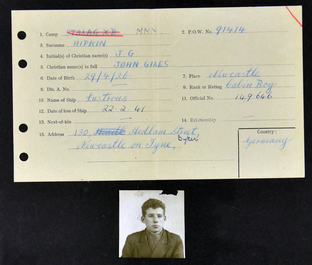 1. Camp STALAG XB MNN 2. P.O.W. No. 91414
3. Surname HIPKIN
4. Initial(s) of Christian name(s) J. G
5. Christian name(s) in full JOHN GILES
6. Date of Birth 29/4/26 7. Place Newcastle
8. Div. A. No. 9. Rank or Rating Cabin Boy
10. Name of Ship Lustrous 11. Official No. 149646
12. Date of loss of Ship 22-2-41
13. Next-of-kin — 14. Relationship —
15. Address 150, Hudlam Street,
Byker
Newcastle on Tyne,
Country:
Germany